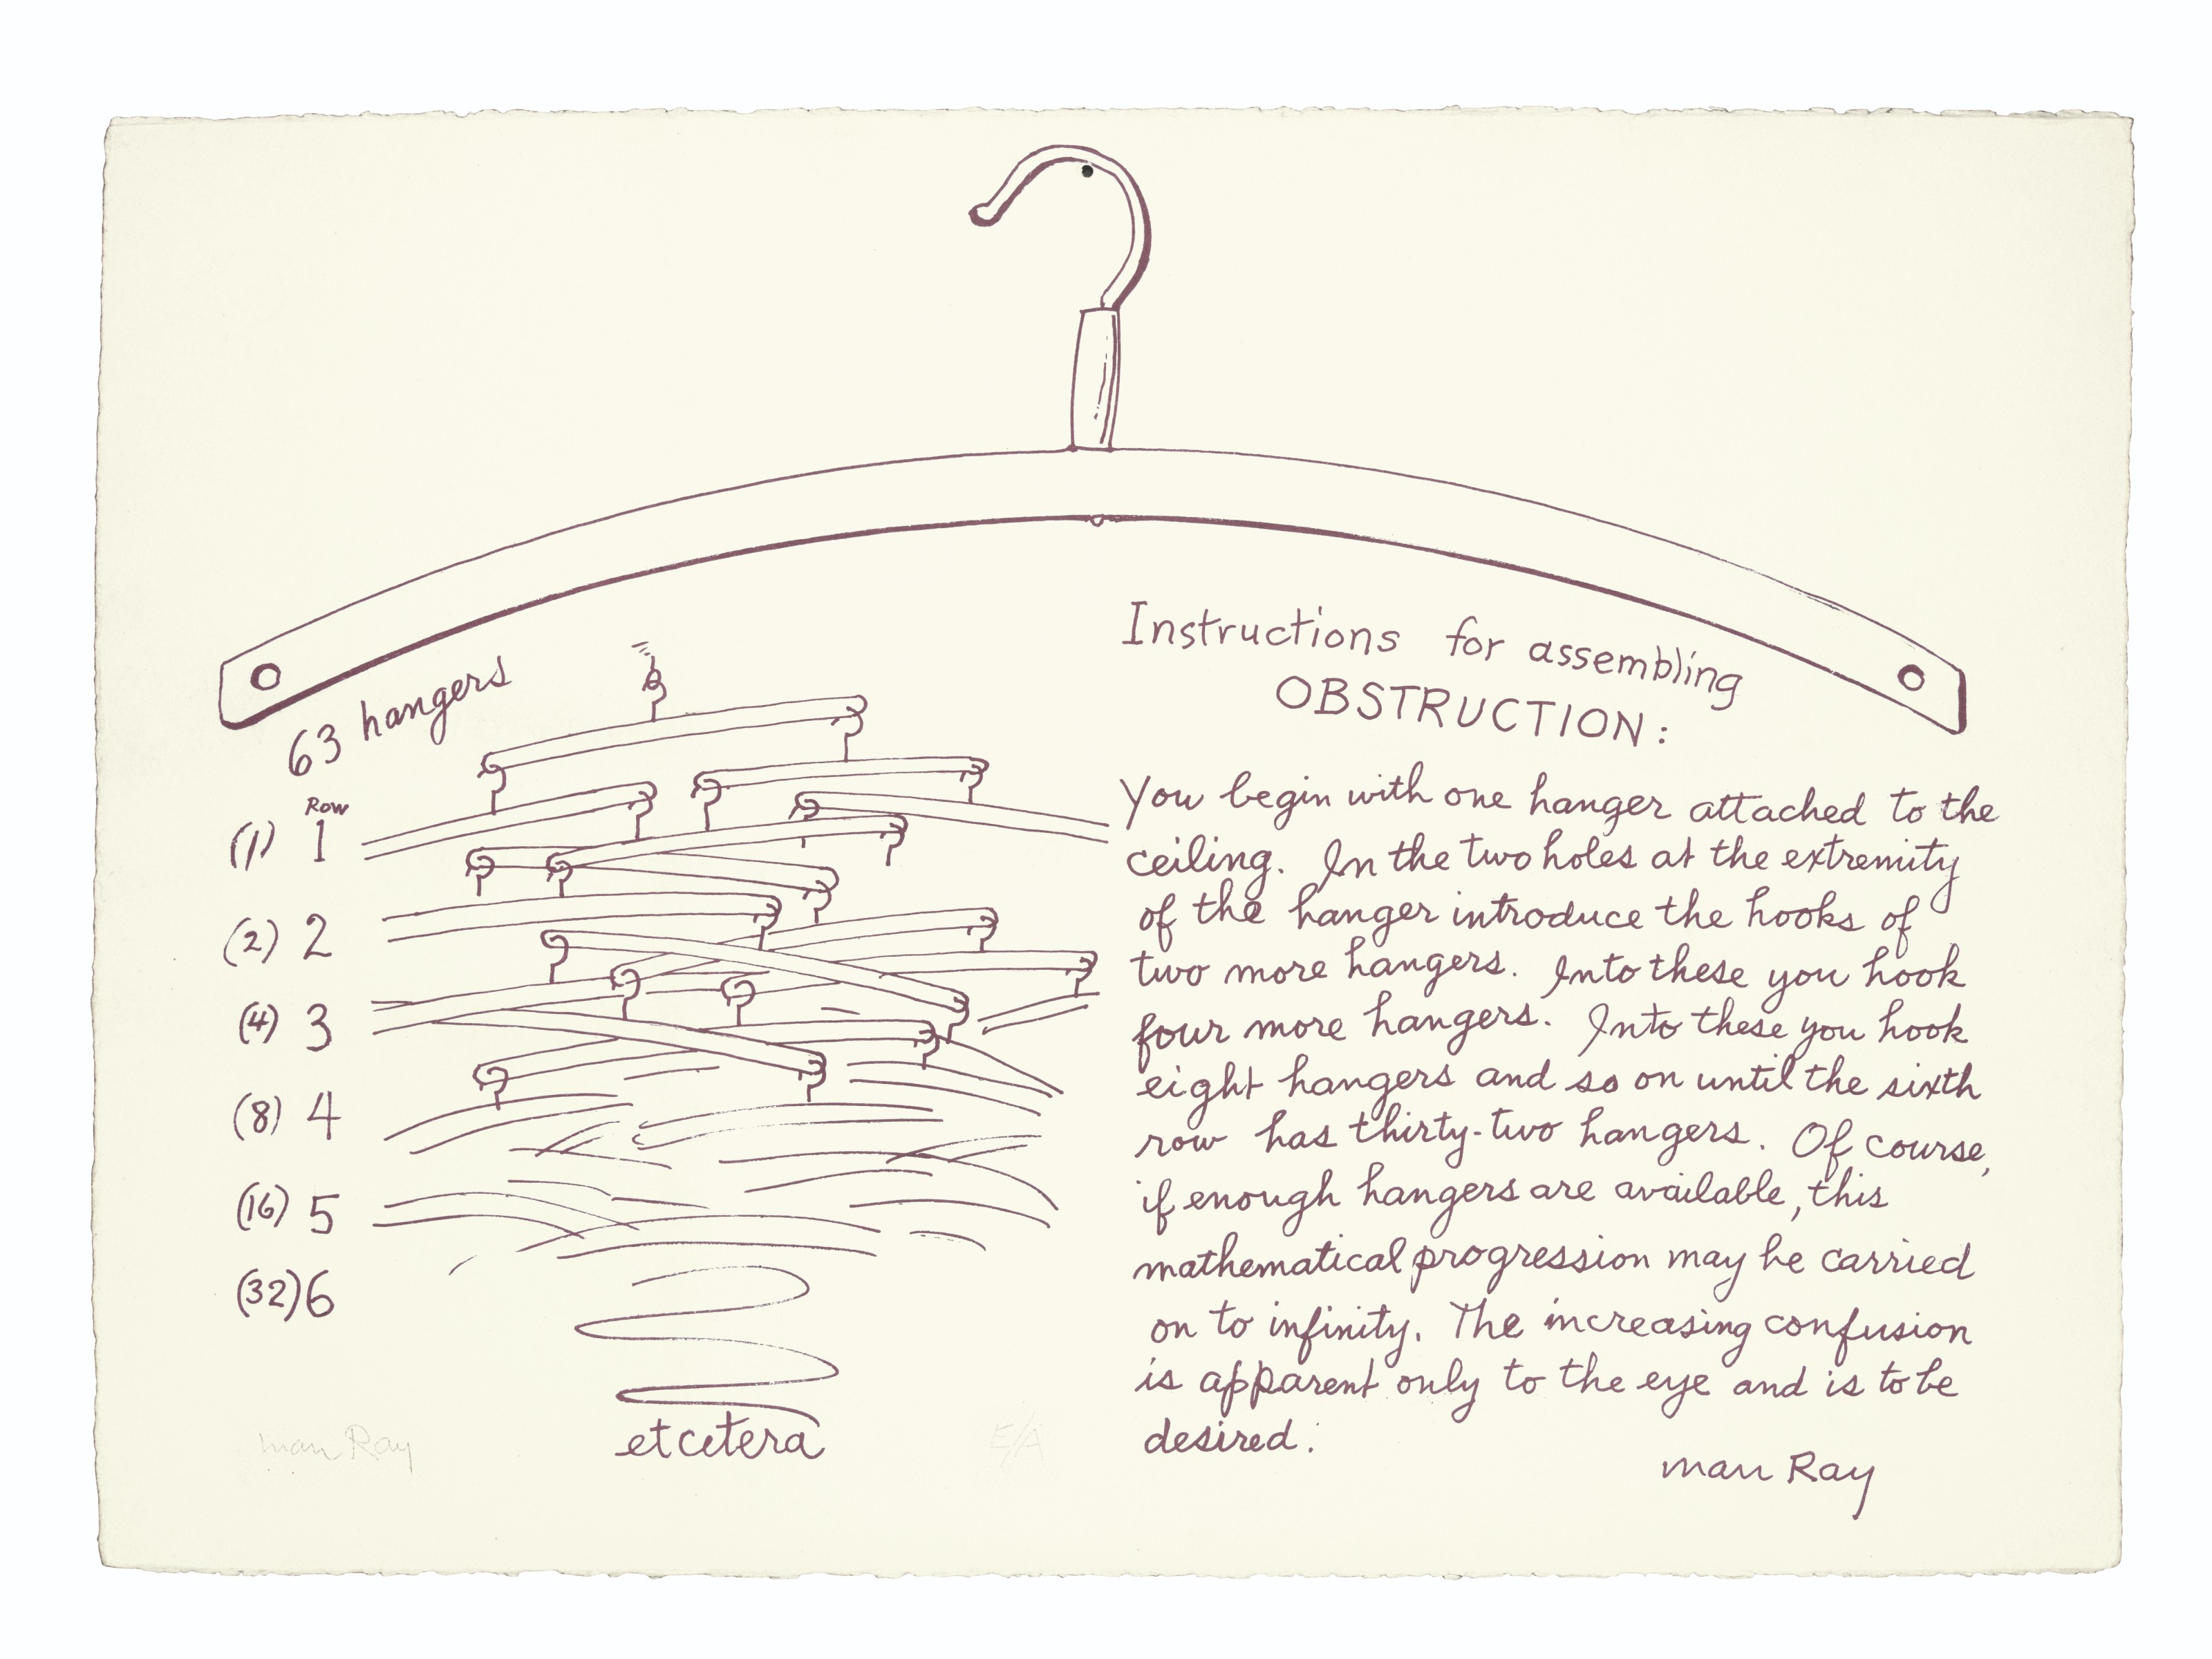 63 hangers
Row
(1) 1
(2) 2
(4) 3
(8) 4
(16) 5
(32) 6
etcetera
Instructions for assembling
OBSTRUCTION:
You begin with one hanger attached to the
ceiling. In the two holes at the extremity
of the hanger introduce the hooks of
two more hangers. Into these you hook
four more hangers. Into these you hook
eight hangers and so on until the sixth
row has thirty-two hangers. Of course,
if enough hangers are available, this
mathematical progression may be carried
on to infinity. The increasing confusion
is apparent only to the eye and is to be
desired.
man Ray
man Ray
E/A